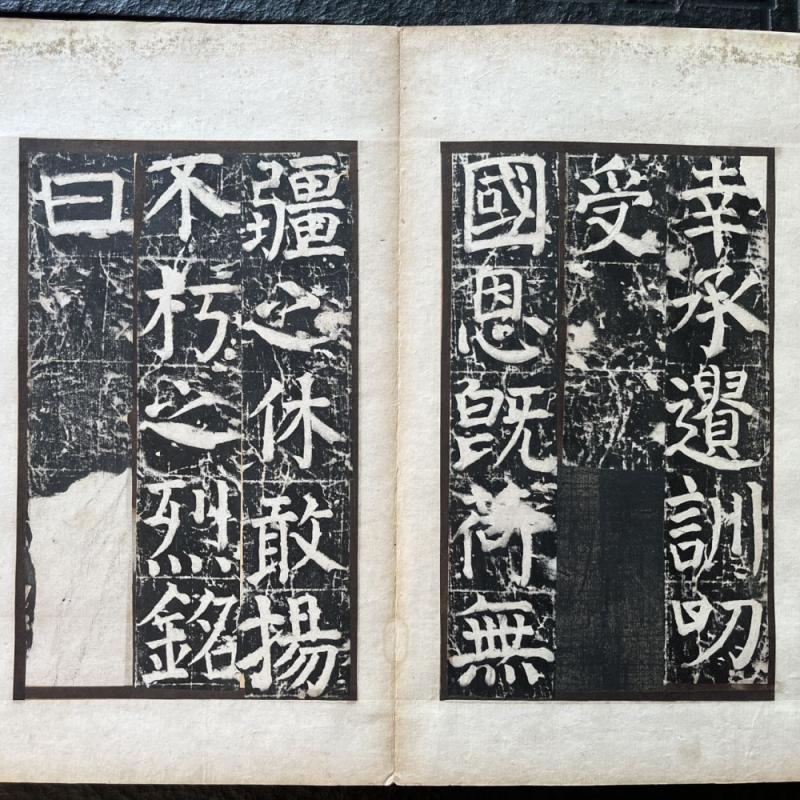 幸承遺訓叨
受
國恩既荷無
疆之休敢揚
不朽之烈銘
曰